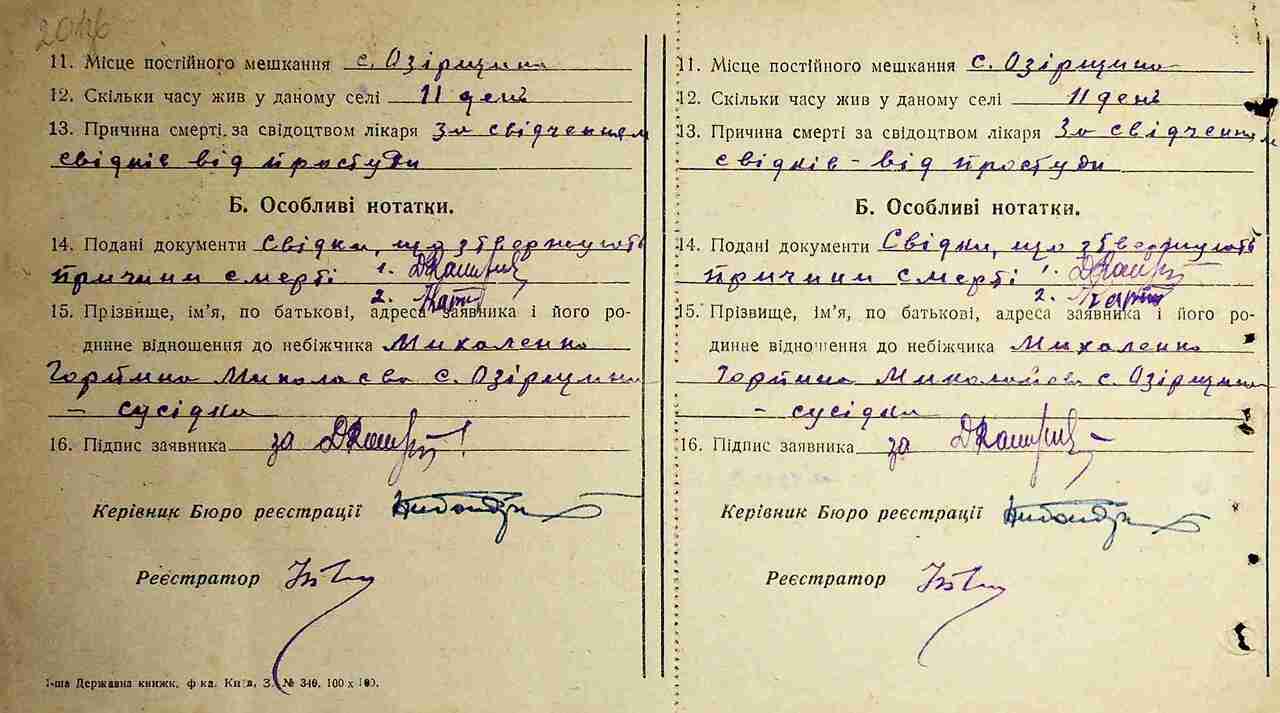 11. Місце постійного мешкання с. Озірщина
12. Скільки часу жив у даному селі 11 день
13. Причина смерті за свідоцтвом лікаря За свідченням
свідків від простуди
Б. Особливі нотатки.
14. Подані документи Свідки, що зтвержують
причини смерті 1.
2.
15. Прізвище, ім’я, по батькові, адреса заявника і його ро-
динне відношення до небіжчика Михаленко
Горпина Миколаєва с. Озірщина
– сусідка
16. Підпис заявника за
Керівник Бюро реєстрації
Реєстратор
1-ша Державна книжк. ф-ка. Київ, З. № 340. 100 х 100.
11. Місце постійного мешкання с. Озірщина
12. Скільки часу жив у даному селі 11 день
13. Причина смерті за свідоцтвом лікаря За свідченням
свідків – від простуди
Б. Особливі нотатки.
14. Подані документи Свідки, що зтвержують
причини смерті 1.
2.
15. Прізвище, ім’я, по батькові, адреса заявника і його ро-
динне відношення до небіжчика Михаленко
Горпина с. Озірщина
– сусідка
16. Підпис заявника за
Керівник Бюро реєстрації
Реєстратор